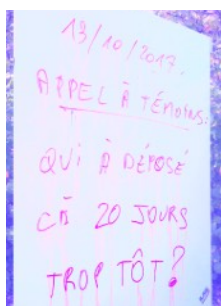 13/10/2017.
APPEL À TÉMOINS:
QUI À DÉPOSÉ
CÀ 20 JOURS
TROP TÔT?